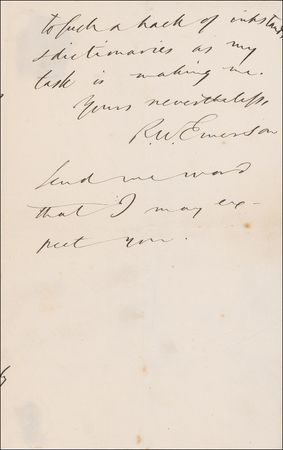 to such a hack of inkstands
& dictionaries as my
task is making me.
Yours nevertheless,
R. W. Emerson
Send me word
that I may ex-
pect you.